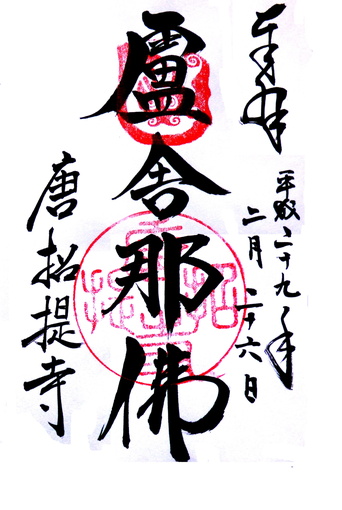 奉拝
平成二十九年
二月二十六日
盧舎那佛
唐招提寺